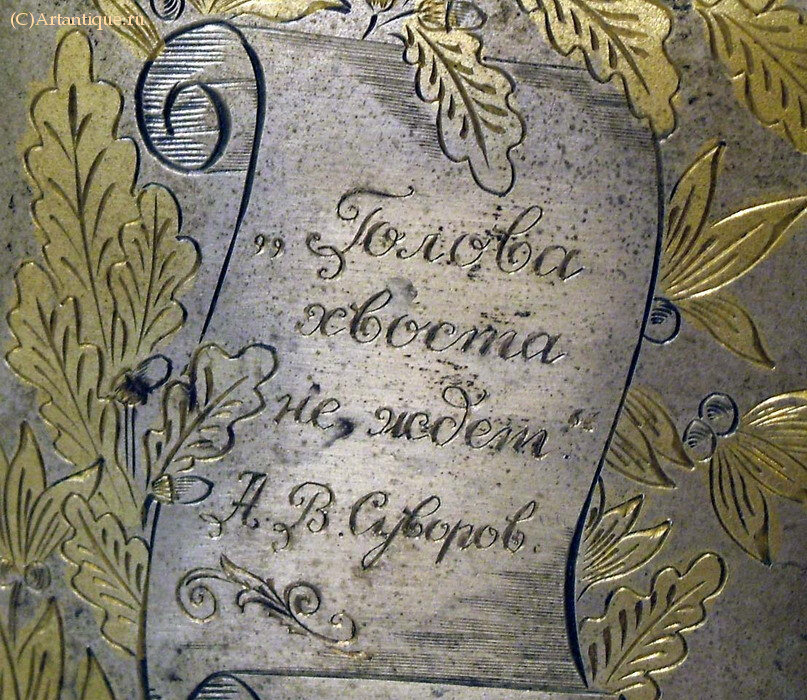 (C)Artantique.ru
„Голова
хвоста
не ждет“.
А. В. Суворов.